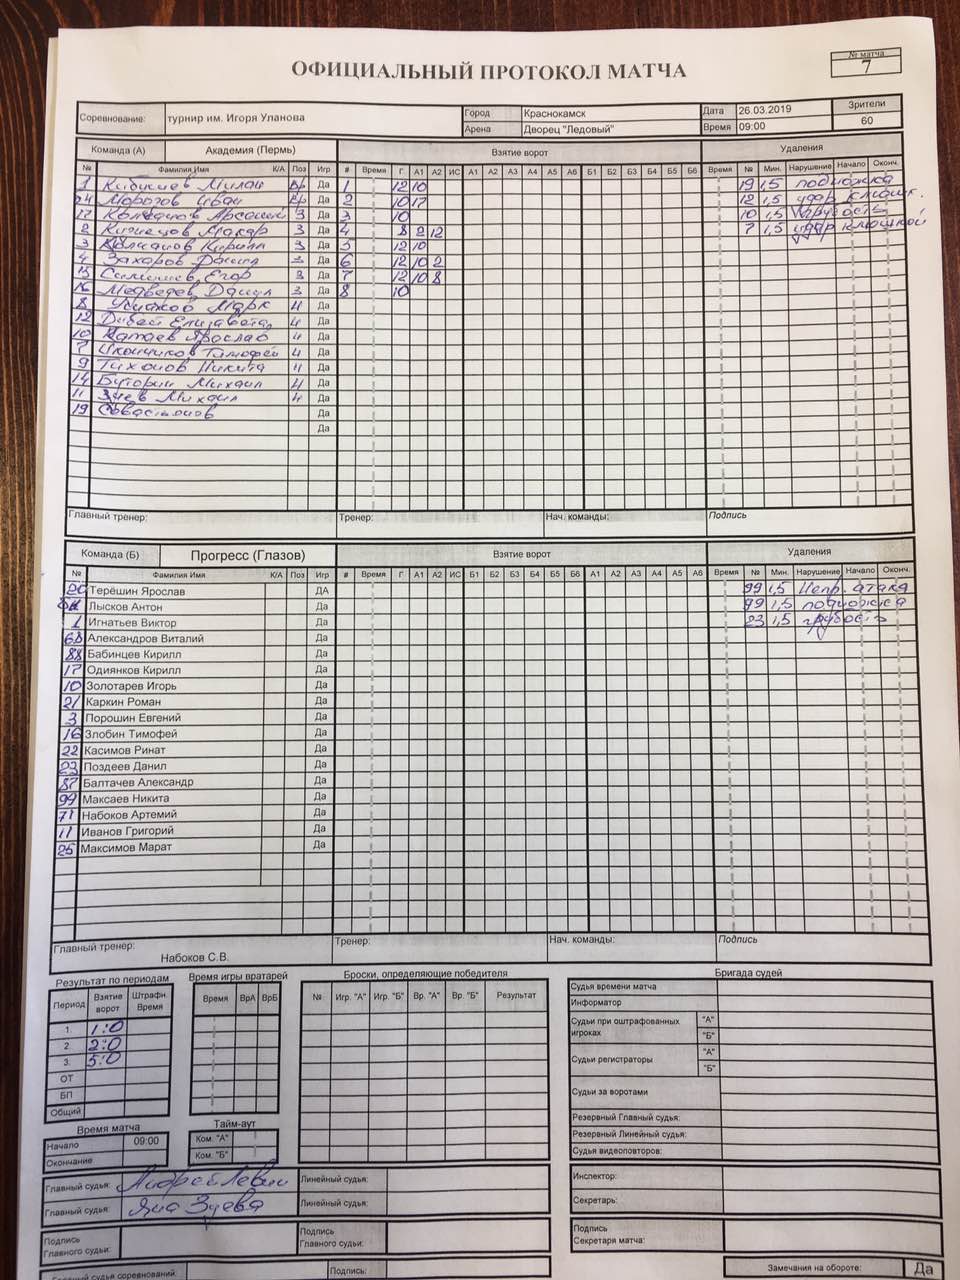 ОФИЦИАЛЬНЫЙ ПРОТОКОЛ МАТЧА
№ матча
7
Соревнование: турнир им. Игоря Уланова Город Краснокамск Дата 26.03.2019 Зрители
Арена Дворец "Ледовый" Время 09:00 60
Команда (А) Академия (Пермь) Взятие ворот Удаления
№ Фамилия Имя К/А Поз Игр # Время Г А1 А2 ИС А1 А2 А3 А4 А5 А6 Б1 Б2 Б3 Б4 Б5 Б6 Время № Мин. Нарушение Начало Оконч.
1 Милан Вр Да 1 12 10 19 1,5 подножка
Морозов Иван Вр Да 2 10 17 12 1,5 удар клюшк.
17 Арсений З Да 3 10 10 1,5 грубость
2 Кузнецов Макар З Да 4 8 2 12 7 1,5 удар клюшкой
3 Кирилл З Да 5 12 10
4 Захаров Данил З Да 6 12 10 2
15 Егор З Да 7 12 10 8
16 Медведев Данил З Да 8 10
8 Марк Н Да
12 Елизавета Н Да
10 Катаев Ярослав Н Да
7 Тимофей Н Да
9 Тихонов Никита Н Да
14 Буторин Михаил Н Да
11 Зуев Михаил Н Да
19 Севастьянов Да
Да
Главный тренер: Тренер: Нач. команды: Подпись
Команда (Б) Прогресс (Глазов) Взятие ворот Удаления
№ Фамилия Имя К/А Поз Игр # Время Г А1 А2 ИС Б1 Б2 Б3 Б4 Б5 Б6 А1 А2 А3 А4 А5 А6 Время № Мин. Нарушение Начало Оконч.
Терёшин Ярослав ДА 99 1,5 Непр. атака
Лысков Антон Да 99 1,5 подножка
1 Игнатьев Виктор Да 23 1,5 грубость
68 Александров Виталий Да
88 Бабинцев Кирилл Да
17 Одиянков Кирилл Да
10 Золотарев Игорь Да
21 Каркин Роман Да
3 Порошин Евгений Да
16 Злобин Тимофей Да
22 Касимов Ринат Да
23 Поздеев Данил Да
87 Балтачев Александр Да
99 Максаев Никита Да
71 Набоков Артемий Да
11 Иванов Григорий Да
25 Максимов Марат Да
Главный тренер: Набоков С.В. Тренер: Нач. команды: Подпись
Результат по периодам Время игры вратарей Броски, определяющие победителя Бригада судей
Период Взятие ворот Штрафн. Время Время ВрА ВрБ № Игр. "А" Игр. "Б" Вр. "А" Вр. "Б" Результат
1. 1:0
2. 2:0
3. 5:0
ОТ
БП
Общий
Судьи времени матча
Информатор
Судьи при оштрафованных игроках "А" "Б"
Судьи регистраторы "А" "Б"
Судьи за воротами
Резервный Главный судья:
Резервный Линейный судья:
Судья видеоповторов:
Время матча Тайм-аут
Начало 09:00 Ком. "А"
Окончание Ком. "Б"
Главный судья: Андрей Левин Линейный судья: Инспектор:
Главный судья: Яна Зуева Линейный судья: Секретарь:
Подпись Главного судьи: Подпись Главного судьи: Подпись Секретаря матча:
Главный судья соревнований: Подпись: Замечания на обороте: Да